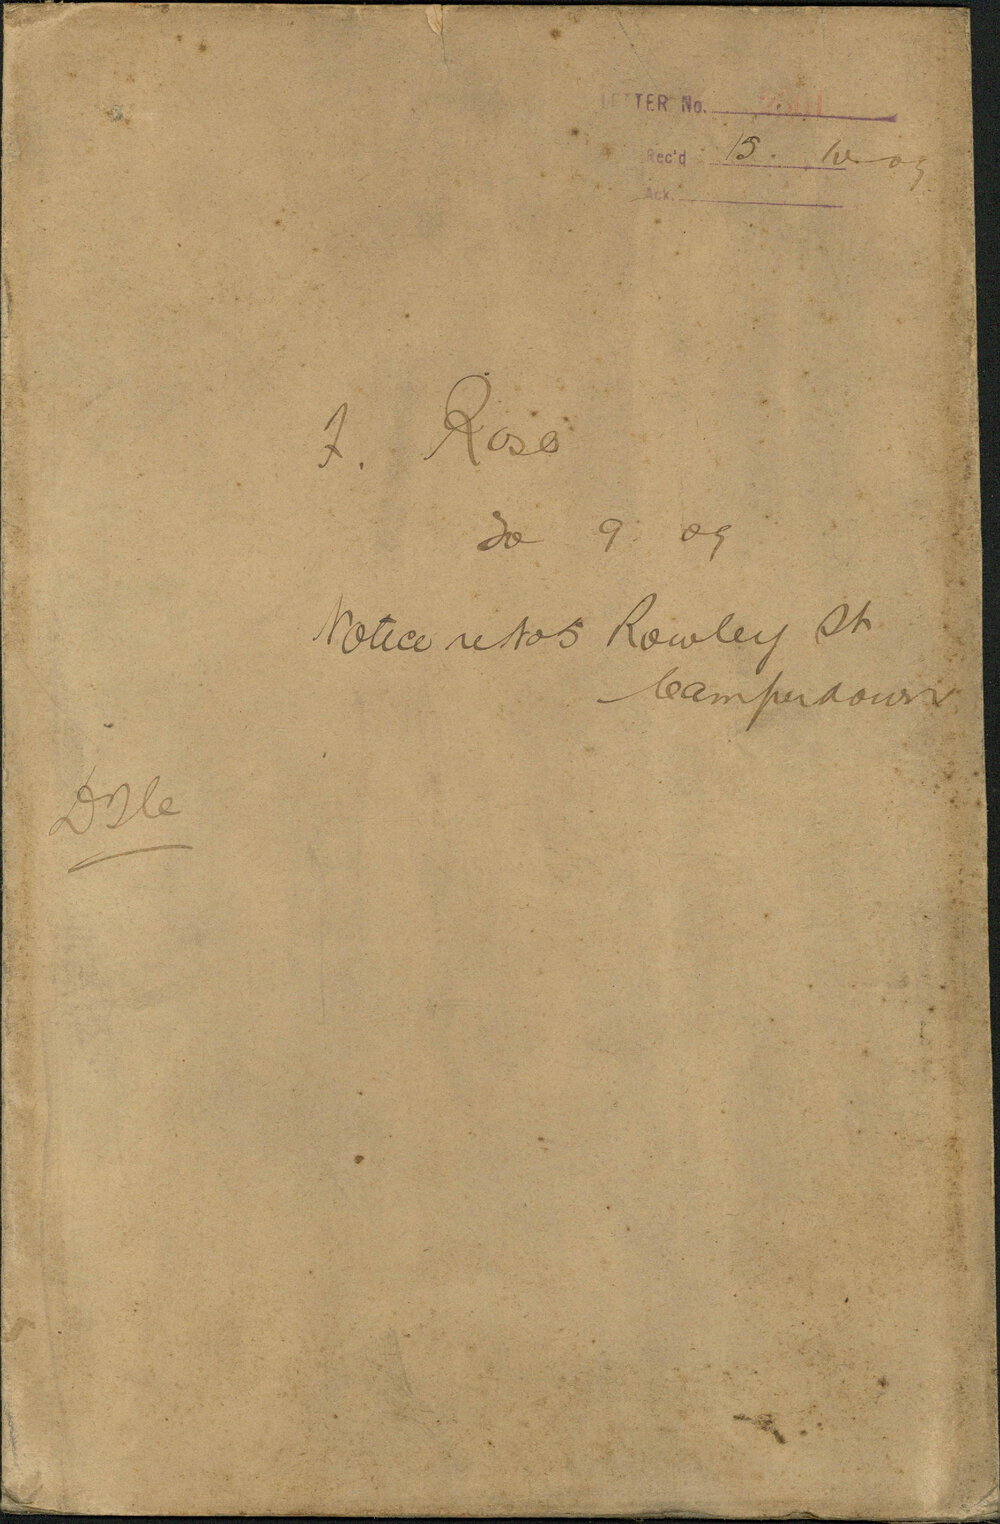 LETTER No.
Rec'd 15. 10 09
Ack.
F. Rose
30 9 09
Notice re No 5 Rowley St
Camperdown